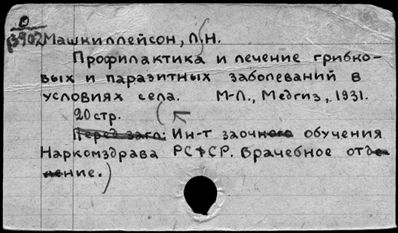 0
13902 Машкиллейсон, Л.Н.
Профилактика и лечение грибко-
вых и паразитных заболеваний в
условиях села. М-Л., Медгиз, 1931.
20 стр.
Перед загл: Ин-т заочного обучения
Наркомздрава РСФСР. Врачебное отде-
ление.)